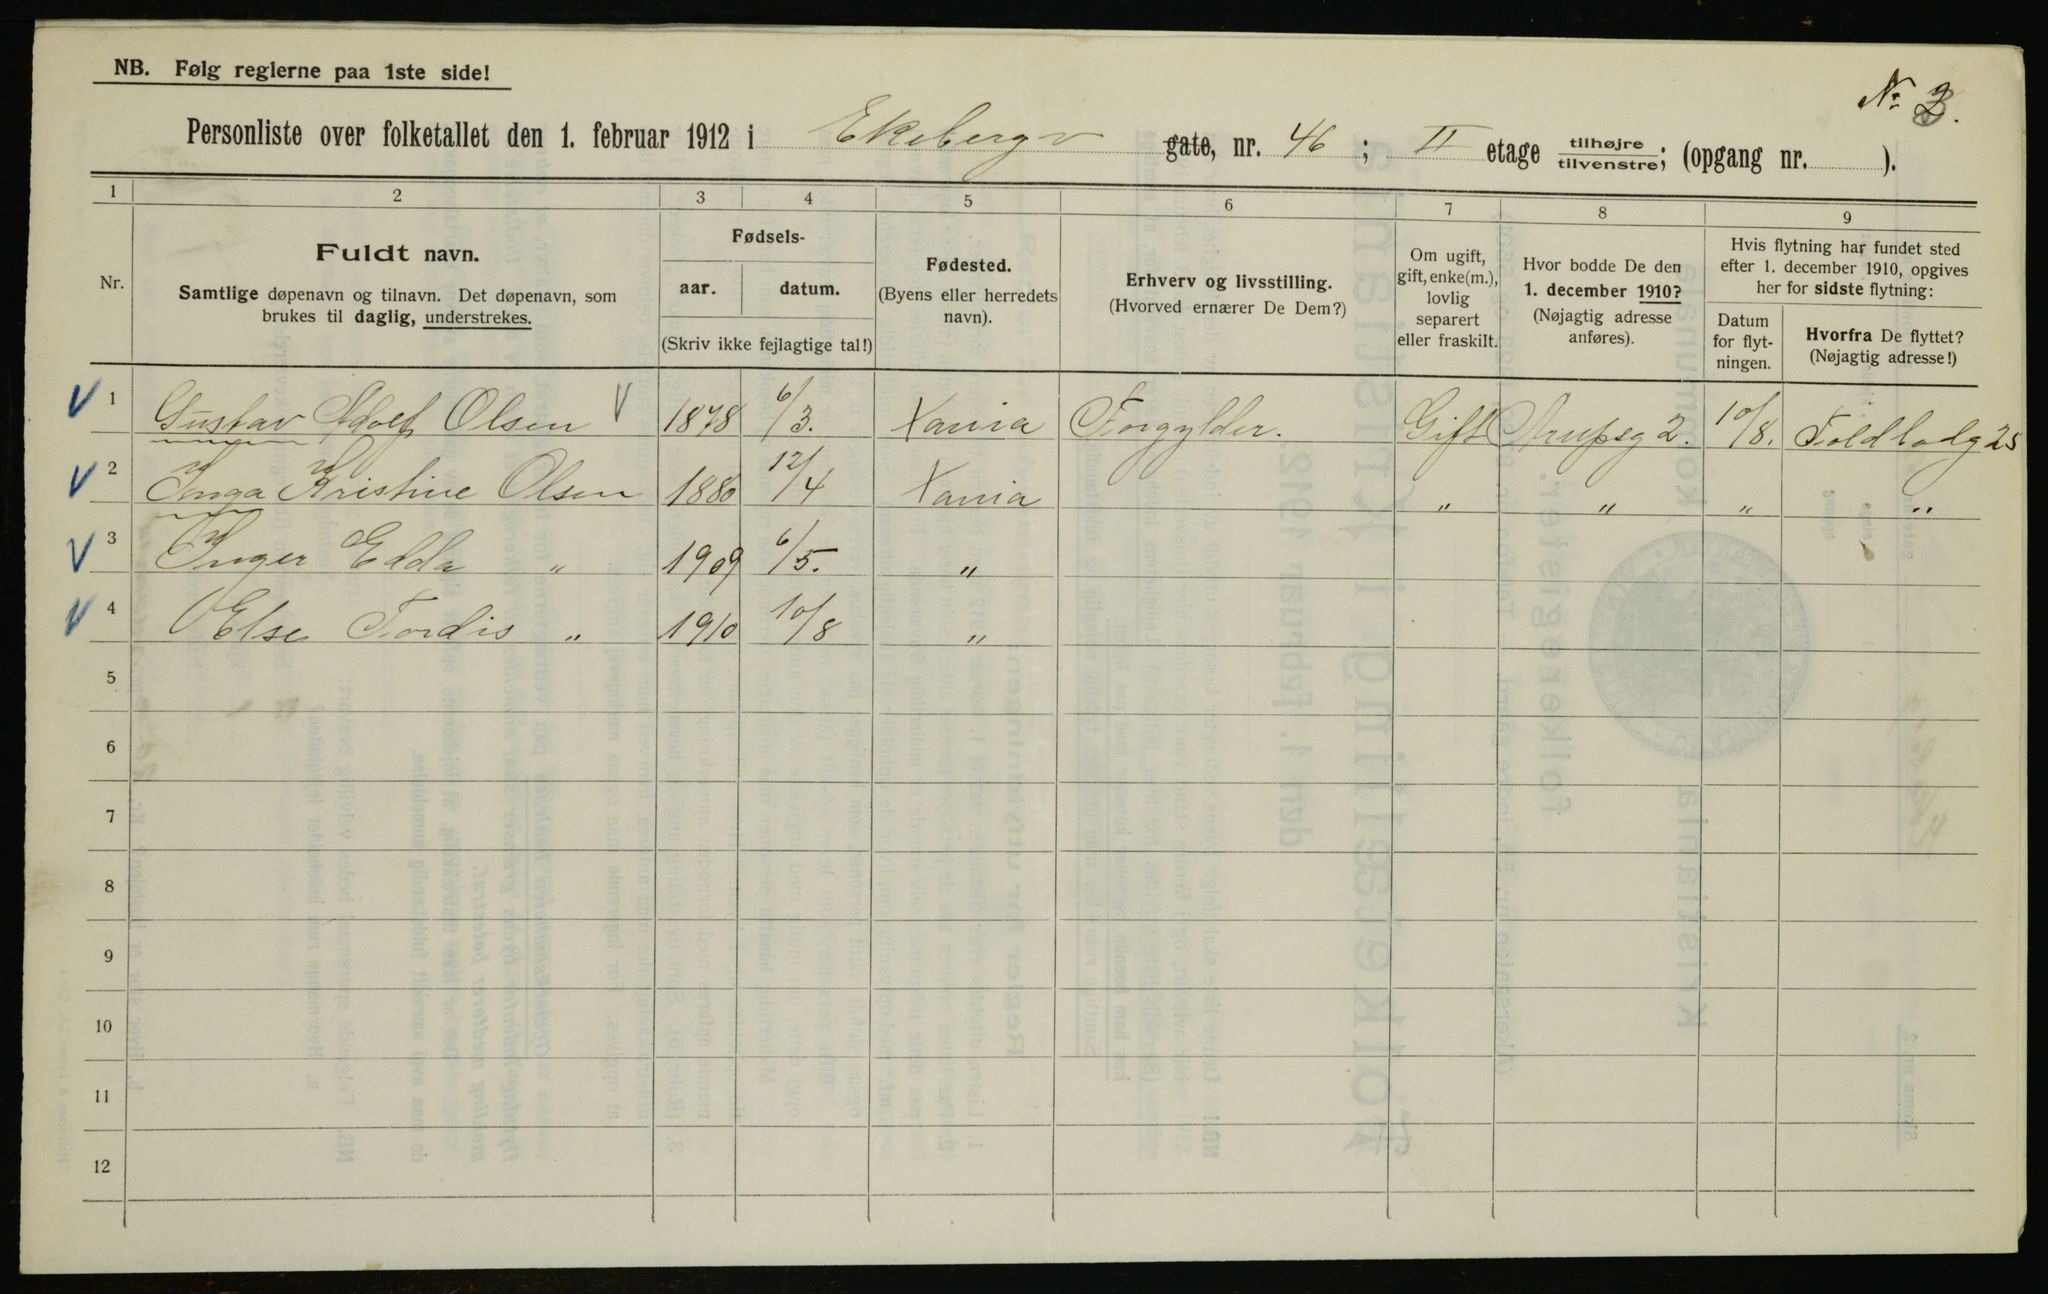 NB. Følg reglerne paa 1ste side!
No 3.
Personliste over folketallet den 1. februar 1912 i Ekebergv gate, nr. 46; II etage tilhøjre tilvenstre; (opgang nr. ).
1 2 3 4 5 6 7 8 9
Nr.
Fuldt navn.
Samtlige døpenavn og tilnavn. Det døpenavn, som
brukes til daglig, understrekes.
Fødsels-
aar. datum.
(Skriv ikke fejlagtige tal!)
Fødested.
(Byens eller herredets
navn).
Erhverv og livsstilling.
(Hvorved ernærer De Dem?)
Om ugift,
gift, enke(m.),
lovlig
separert
eller fraskilt.
Hvor bodde De den
1. december 1910?
(Nøjagtig adresse
anføres).
Hvis flytning har fundet sted
efter 1. december 1910, opgives
her for sidste flytning:
Datum
for flyt-
ningen.
Hvorfra De flyttet?
(Nøjagtig adresse!)
1 Gustav Adolf Olsen 1878 6/3. Xania Forgylder. Gift Arupsg 2. 10/8. Toldbodg 25
2 Inga Kristine Olsen 1880 12/4 Xania " " " "
3 Inger Edda " 1909 6/5. "
4 Else Tordis " 1910 10/8 "
5
6
7
8
9
10
11
12